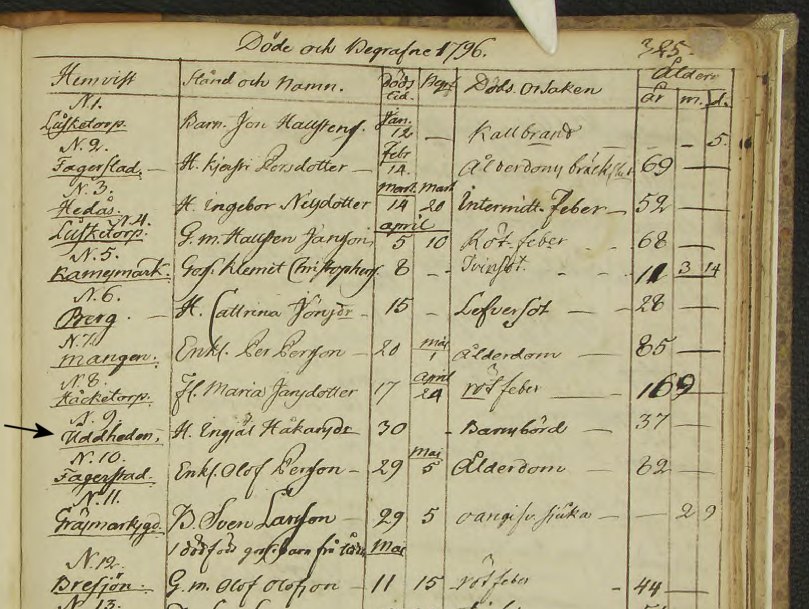 Döde och Begrafne 1796.
325.
Hemvist Stånd och Namn. Döds tid. Begr. Döds Orsaken Ålder
år m. d.
N. 1. Jan.
Lusketorp. Barn. Jon Hallstens. 12 — Kallbrand — - 5.
N. 2. Febr
Fagerstad. — H. Kjerstri Persdotter — 14. Ålderdoms bräcklhet 69 —
N. 3. Mart. Mart
Hedås. H. Ingebor Nilsdotter 14 20 Intermitt. Feber — 52 —
N. 4. april
Lusketorp. G. m. Hallsten Janson, 5 10 Röt-feber — 68 —
N. 5.
Gos. Klemet Christophers. 8 - - - - 11 3 14
N. 6.
Berg. — H. Cattrina Jonsdr — 15 — Lefversot — 28 —
N. 7. Maj
Mangen. Enkl. Per Person — 20 1 Ålderdom — 85 —
N. 8. April
Häcketorp. Fl. Maria Jansdotter 17 24 rötfeber — 16 9 —
N. 9
Uddheden, H. Ingjäl Håkansdr 30 - Barnsbörd — 37 —
N. 10. Maj
Fagerstad. Enkl. Olof Person — 29 5 Ålderdom — 62 —
N. 11.
Gräsmarksgd. B. Sven Larsson — 29 5 oangifv. sjuka — — 2 9
1 dödföds gossebarn frå Maj
N. 12.
Bresjön. G. m. Olof Olofson — 11 15 rötfeber - 44 —
N. 13.